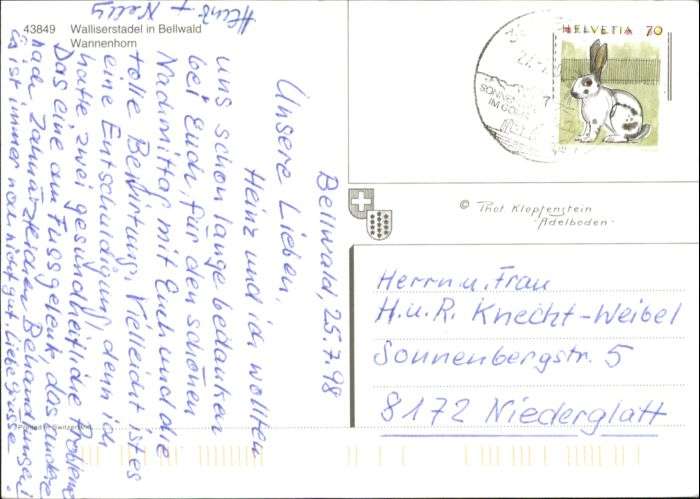 43849 Walliserstadel in Bellwald
Wannenhorn
HELVETIA 70
© Phot Klopfenstein
Adelboden
Herrn u. Frau
H. u. R. Knecht-Weibel
Sonnenbergstr. 5
8172 Niederglatt
Bellwald, 25.7.98
Unsere Lieben,
Heinz und ich wollten
uns schon lange bedanken
bei Euch, für den schönen
Nachmittag mit Euch und die
tolle Bewirtung. Vielleicht ist es
eine Entschuldigung, denn ich
hatte zwei gesundheitliche Probleme
Das eine am Fussgelenk, das andere
nach Zahnärztlicher Behandlung!
Es ist immer noch nicht gut. Liebe Grüsse
Heinz + Nelly
Printed in Switzerland